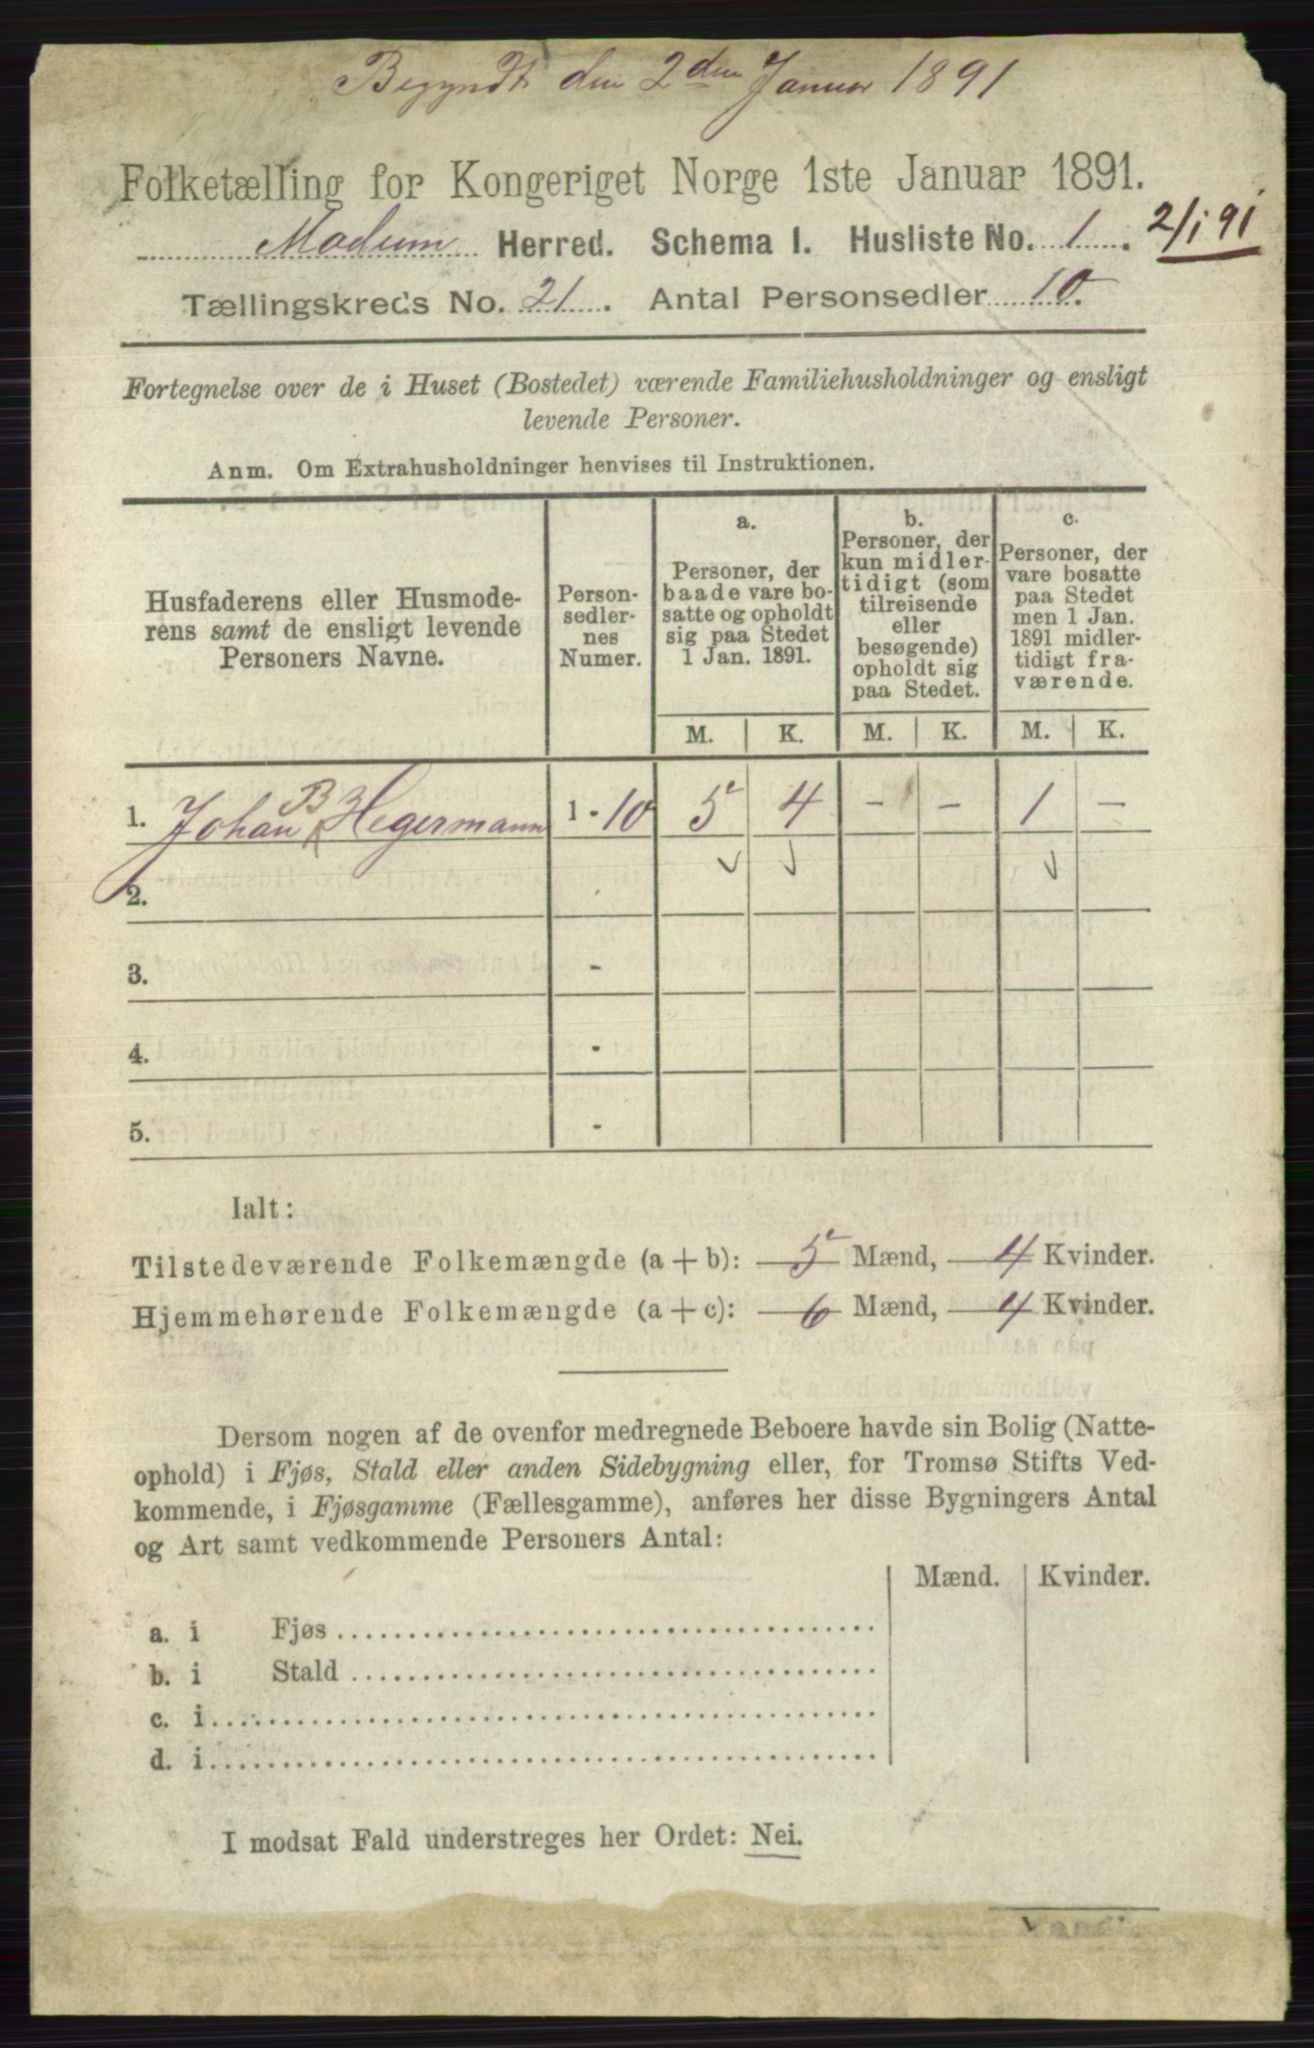 Begyndt den 2den Januar 1891
Folketælling for Kongeriget Norge 1ste Januar 1891.
Modum Herred. Schema 1. Husliste No. 1. 2/1 91
Tællingskreds No. 21. Antal Personsedler 10.
Fortegnelse over de i Huset (Bostedet) værende Familiehusholdninger og ensligt
levende Personer.
Anm. Om Extrahusholdninger henvises til Instruktionen.
Husfaderens eller Husmode-
rens samt de ensligt levende
Personers Navne.
Person-
sedler-
nes
Numer.
a.
Personer, der
baade vare bo-
satte og opholdt
sig paa Stedet
1 Jan. 1891.
b.
Personer, der
kun midler-
tidigt (som
tilreisende
eller
besøgende)
opholdt sig
paa Stedet.
c.
Personer, der
vare bosatte
paa Stedet
men 1 Jan.
1891 midler-
tidigt fra-
værende.
M. K. M. K. M. K.
1. Johan B Hegermann 1 - 10 5 4 - - 1 -
2.
3. -
4. -
5. -
Ialt:
Tilstedeværende Folkemængde (a + b): 5 Mænd, 4 Kvinder.
Hjemmehørende Folkemængde (a + c): 6 Mænd, 4 Kvinder.
Dersom nogen af de ovenfor medregnede Beboere havde sin Bolig (Natte-
ophold) i Fjøs, Stald eller anden Sidebygning eller, for Tromsø Stifts Ved-
kommende, i Fjøsgamme (Fællesgamme), anføres her disse Bygningers Antal
og Art samt vedkommende Personers Antal:
Mænd. Kvinder.
a. i Fjøs
b. i Stald
c. i
d. i
I modsat Fald understreges her Ordet: Nei.